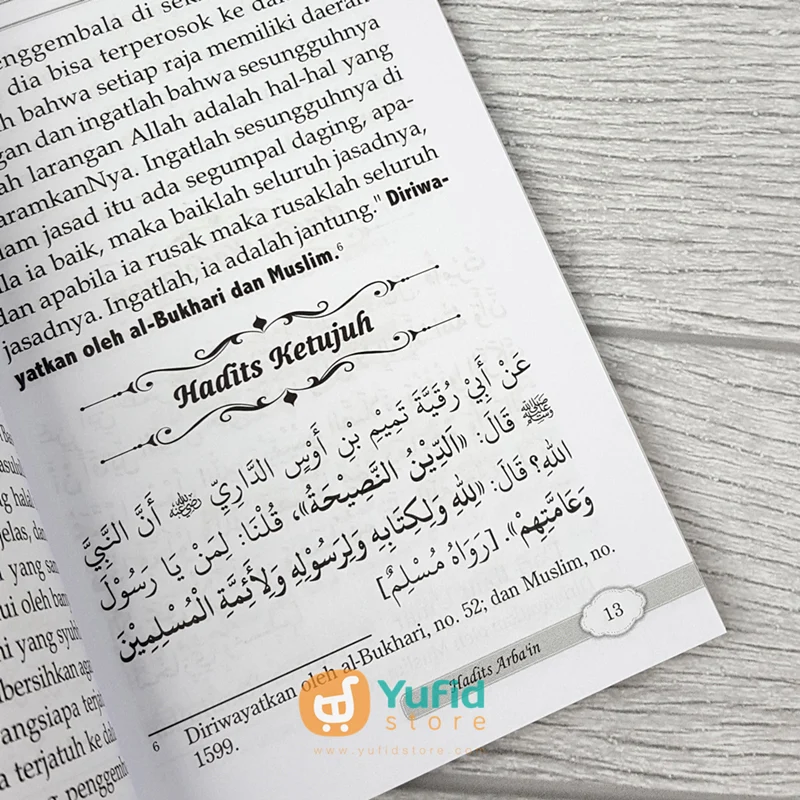 nggembala di
dia bisa terperosok ke
bahwa setiap raja memiliki daerah
gan dan ingatlah bahwa sesungguhnya
ah larangan Allah adalah hal-hal yang
aramkanNya. Ingatlah sesungguhnya di
lam jasad itu ada segumpal daging, apa-
la ia baik, maka baiklah seluruh jasadnya,
dan apabila ia rusak maka rusaklah seluruh
jasadnya. Ingatlah, ia adalah jantung." Diriwa-
yatkan oleh al-Bukhari dan Muslim.⁶
Hadits Ketujuh
عَنْ أَبِيْ رُقَيَّةَ تَمِيْمِ بْنِ أَوْسٍ الدَّارِيِّ ﵁ أَنَّ النَّبِيَّ
ﷺ قَالَ: «اَلدِّيْنُ النَّصِيْحَةُ»، قُلْنَا: لِمَنْ يَا رَسُوْلَ
اللهِ؟ قَالَ: «لِلهِ وَلِكِتَابِهِ وَلِرَسُوْلِهِ وَلِأَئِمَّةِ الْمُسْلِمِيْنَ
وَعَامَّتِهِمْ». [رَوَاهُ مُسْلِمٌ]
6 Diriwayatkan oleh al-Bukhari, no. 52; dan Muslim, no.
1599.
Hadits Arba'in
13
jelas, da
yang sa
ui oleh ban
ni yang syub
bersihkan aga
angsiapa terja
a terjatuh ke da
yang penggemb
Yufid
store
www.yufidstore.com